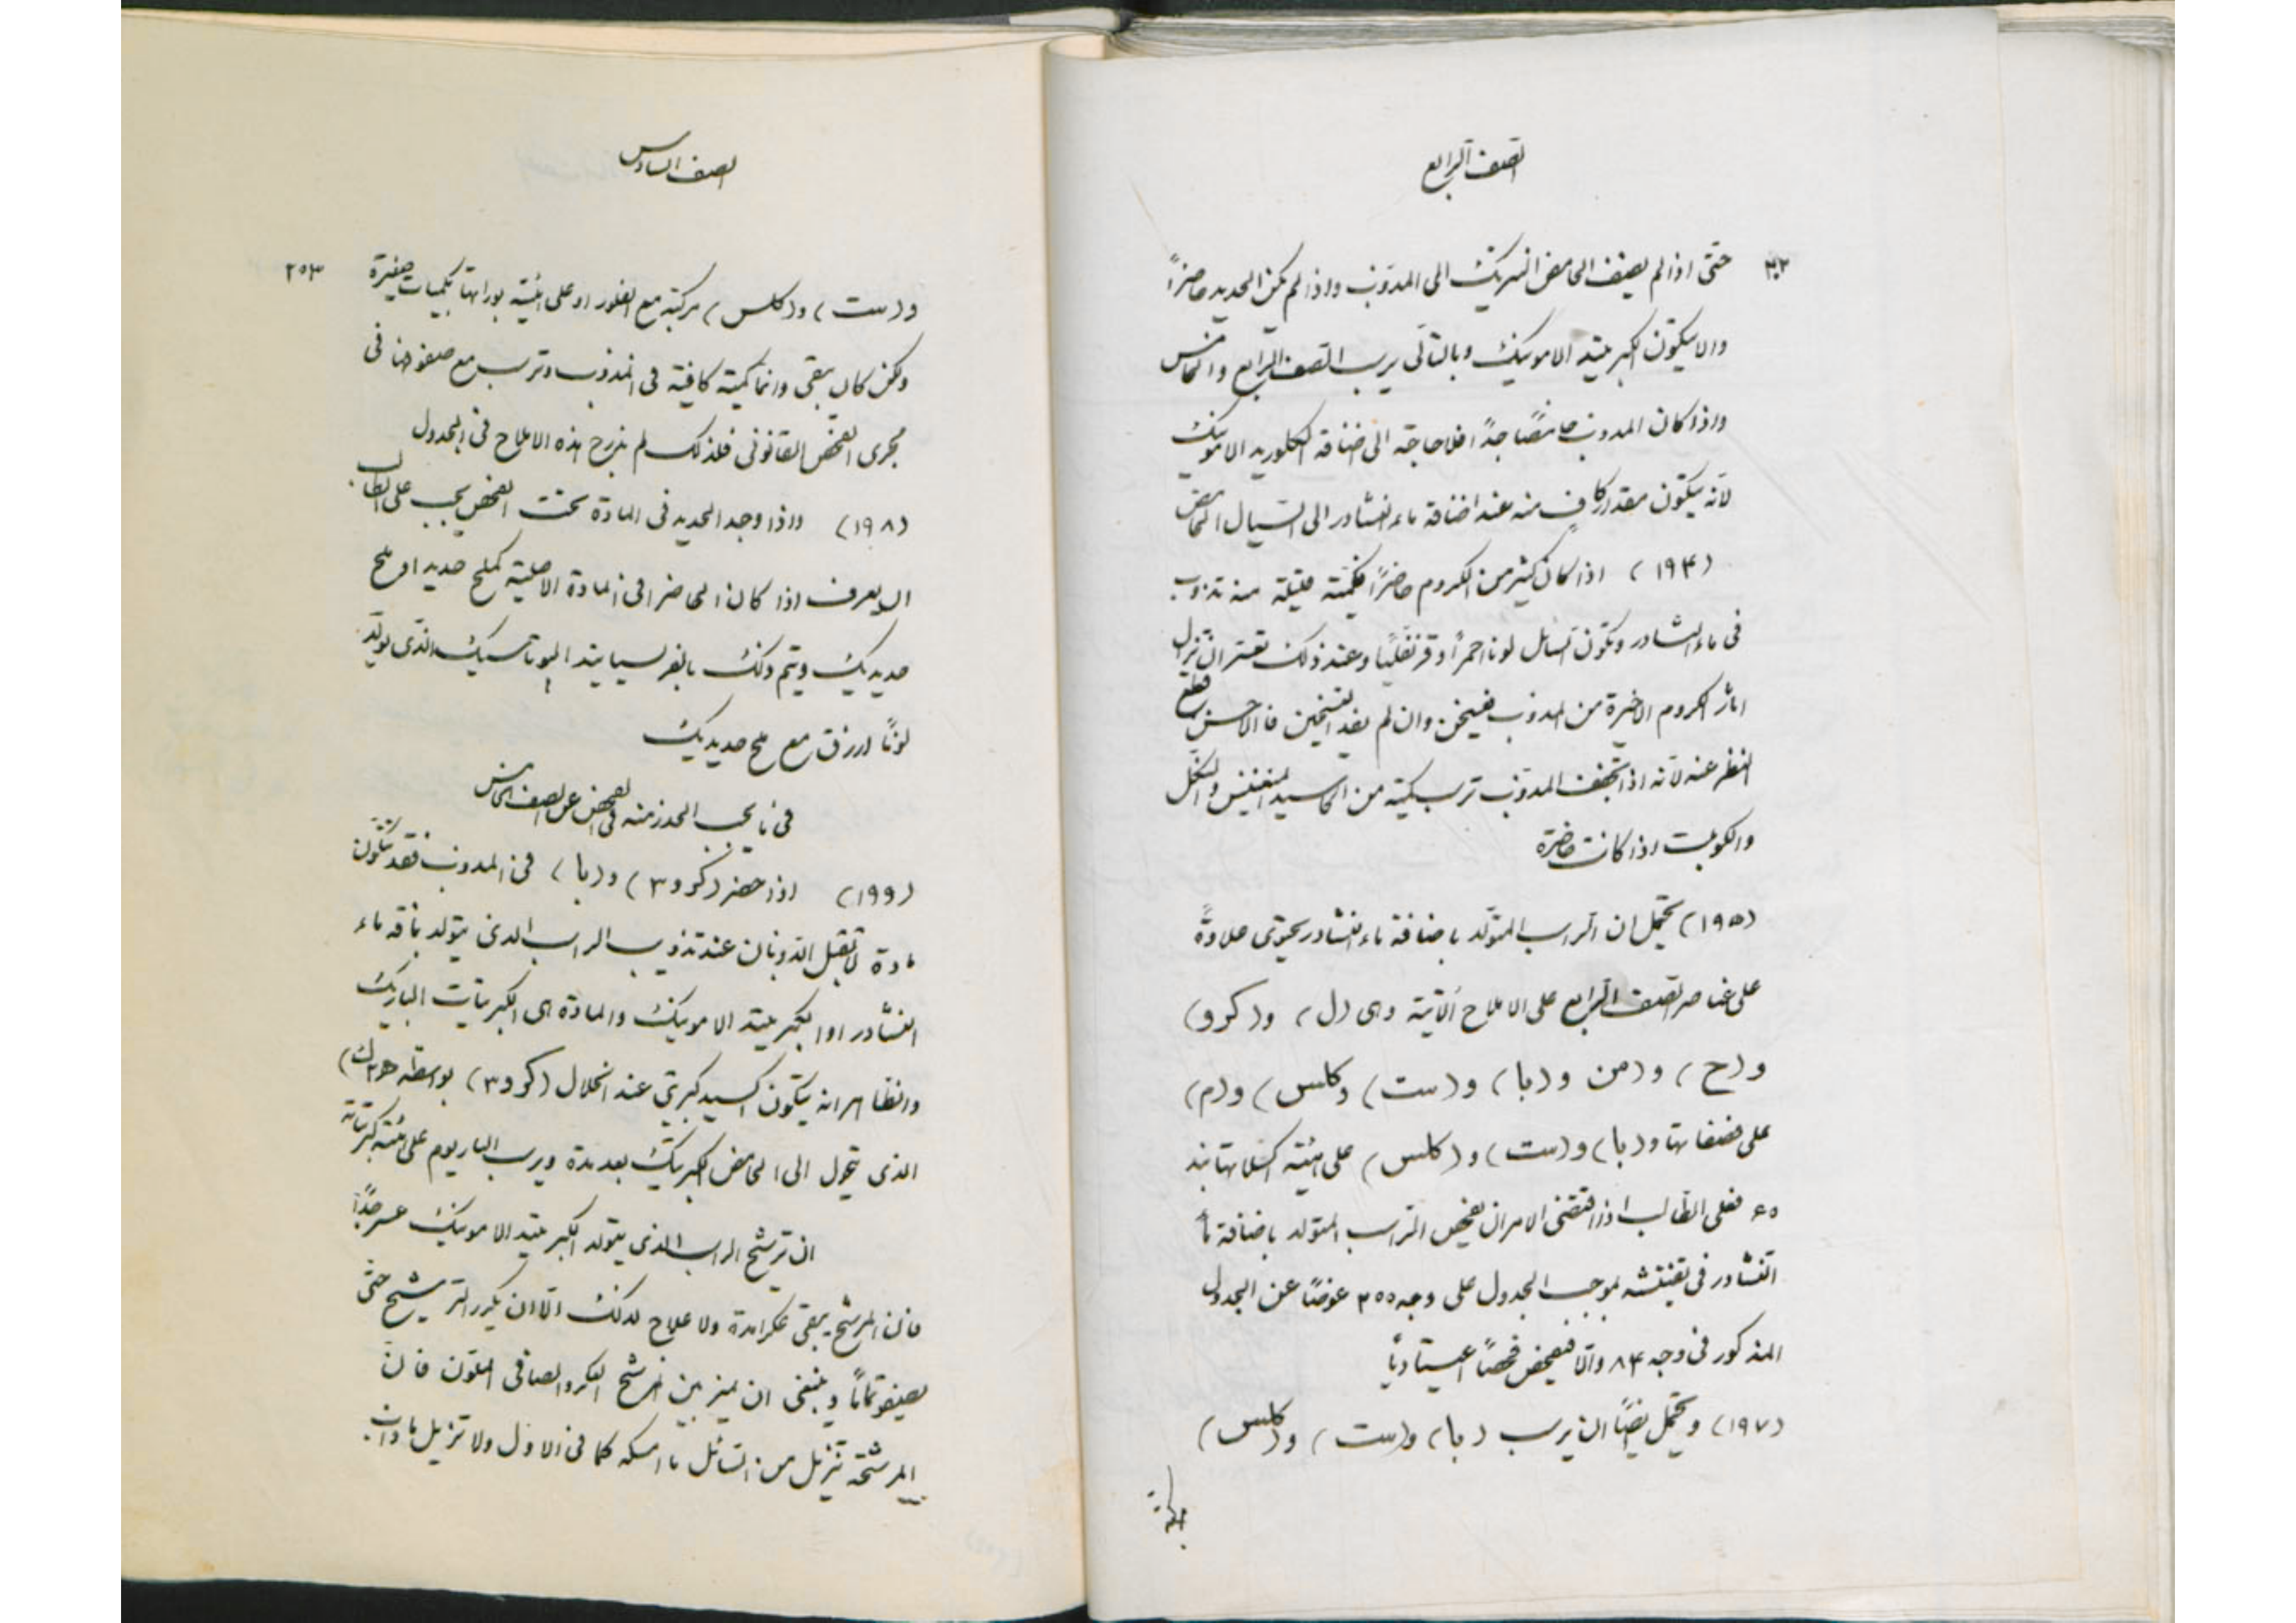 الصف الرابع
حتى اذا لم يضف الحامض النتريك الى المذوّب واذا لم يكن الحديد حاضراً
والا يتكوّن الكبريتيد الامونيك وبالتالى يرسب الصف الرابع والخامس
واذا كان المذوب حامضاً جداً فلا حاجة الى اضافة الكلوريد الامونيك
لانه يتكون مقدار كافٍ منه عند اضافة ماء النشادر الى السيال الحامض
(١٩۴) اذا كان كثير من الكروم حاضراً فكمية قليلة منه تذوب
فى ماء النشادر وتكون للسائل لونا احمر أو قرنفليًا وعند ذلك تعسر ان تزل
اثار الكروم الاخيرة من المذوب فيسخن وان لم يفد التسخين فالاحسن قطع
النظر عنه لانه اذا تجفف المذوّب ترسب كمية من اكاسيد المنغنيس والنكل
والكوبلت اذا كانت حاضرة
(١٩۵) يحتمل ان الراسب المتولّد باضافة ماء النشادر يحتوى علاوةً
على عناصر الصف الرابع على الاملاح الآتية وهى (ل) و(كرو)
و(ح) و(من و(با) و(ست) و(كلس) و(م)
على فصفاتها و(با) و(ست) و(كلس) على هيئة
فعلى الطالب اذا اقتضى الامر ان يفحص الراسب المتولد باضافة ماء
النشادر فى تفتيشه بموجب الجدول على وجه ٣٥٥ عوضًا عن الجدول
المذكور فى وجه ٨۴ والا فيفحص فحصًا اعتياديًا
(١٩٧) ويحتمل ايضًا ان يرسب (با) و(ست) و(كلس)
مركبة
الصف السادس
٢٥٣
و(ست) و(كلس) مركبة مع الفلور او على هيئة بوراتها بكميات صغيرة
ولكن كان يبقى دائما كمية كافية فى المذوب وترسب مع صفوفها فى
مجرى الفحص القانونى فلذلك لم ندرج هذه الاملاح فى الجدول
(١٩٨) واذا وجد الحديد فى المادة تحت الفحص يجب على الطالب
ان يعرف اذا كان الحاضر فى المادة الاصلية كملح حديد او ملح
حديديك ويتم ذلك بالفرسيانيد البوتاسيك الذى يولّد
لونًا ازرق مع ملح حديديك
فى ما يجب الحذر منه فى الفحص عن الصف الخامس
(١٩٩) اذا حضر (كرو٣) و(با) فى المذوب فقد تتكون
مادة لا تقبل الذوبان عند تذويب الراسب الذى يتولد باضافة ماء
النشادر او الكبريتيد الامونيك والمادة هى الكبريتات الباريك
والظاهر انه يتكون اكسيد كبريتي عند انحلال (كرو٣) بواسطة
الذى يتحول الى الحامض الكبريتيك بعد مدة ويرسب الباريوم على هيئة كبريتاته
ان ترشيح الراسب الذى يتولد الكبريتيد الامونيك عسر جدًا
فان المرشح يبقى عكرا مدة ولا علاج لذلك الا ان يكرر الترشيح حتى
يصفو تمامًا وينبغى ان يميز بين المرشح العكر والصافى الملون فان
المرشحة تزيل من السائل ما امسكه كما فى الاول ولا تزيل ما ذاب